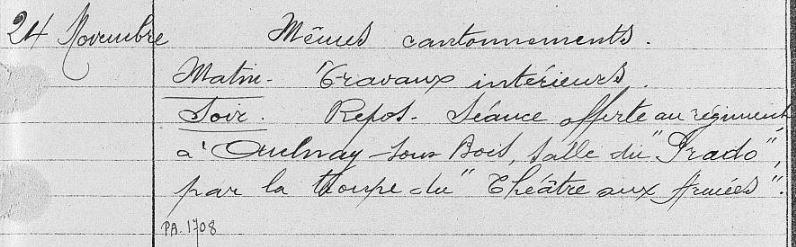 24 Novembre Mêmes cantonnements.
Matin - Travaux intérieurs.
Soir. Repos - Séance offerte au régiment
à Aulnay-sous-Bois, salle du "Prado",
par la troupe du "Théâtre aux Armées".
PA. 1708